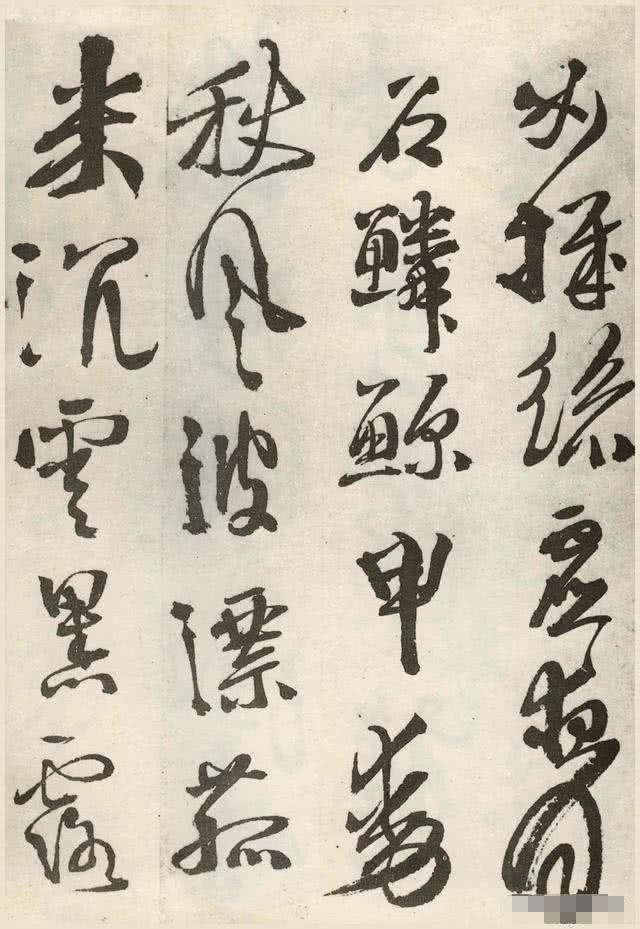 女機絲虛夜月
石鱗鯨甲動
秋風波漂菰
米沉雲黑露